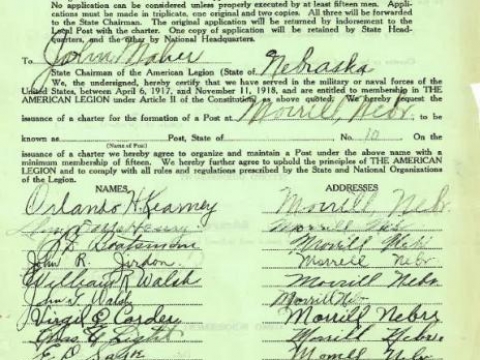 No application can be considered unless properly executed by at least fifteen men. Appli-
cations must be made in triplicate, one original and two copies. All three will be forwarded
to the State Chairman. The original application will be returned by indorsement to the
Local Post with the charter. One copy of application will be retained by State Head-
quarters, and the other by National Headquarters.
To John Maher
State Chairman of the American Legion (State of Nebraska
We, the undersigned, hereby certify that we have served in the military or naval forces of the
United States, between April 6, 1917, and November 11, 1918, and are entitled to membership in THE
AMERICAN LEGION under Article II of the Constitution as above quoted. We hereby request the
issuance of a charter for the formation of a Post at Morrill, Nebr. to be
known as Post, State of No. 10 On the
(Name of Post)
issuance of a charter we hereby agree to organize and maintain a Post under the above name with a
minimum membership of fifteen. We hereby further agree to uphold the principles of THE AMERICAN
LEGION and to comply with all rules and regulations prescribed by the State and National Organizations
of the Legion.
NAMES ADDRESSES
Orlando H. Kearney Morrill, Nebr.
Henry Morrill Neb
Boatsmon Morrill Nebr
John R. Jirdon. Morrell Nebr.
William R Walsh Morrill Nebr
John T Walsh Morrill
Virgil E Carder Morrill Nebr
Light Morrill Nebr.
E. D. Morrill Nebr